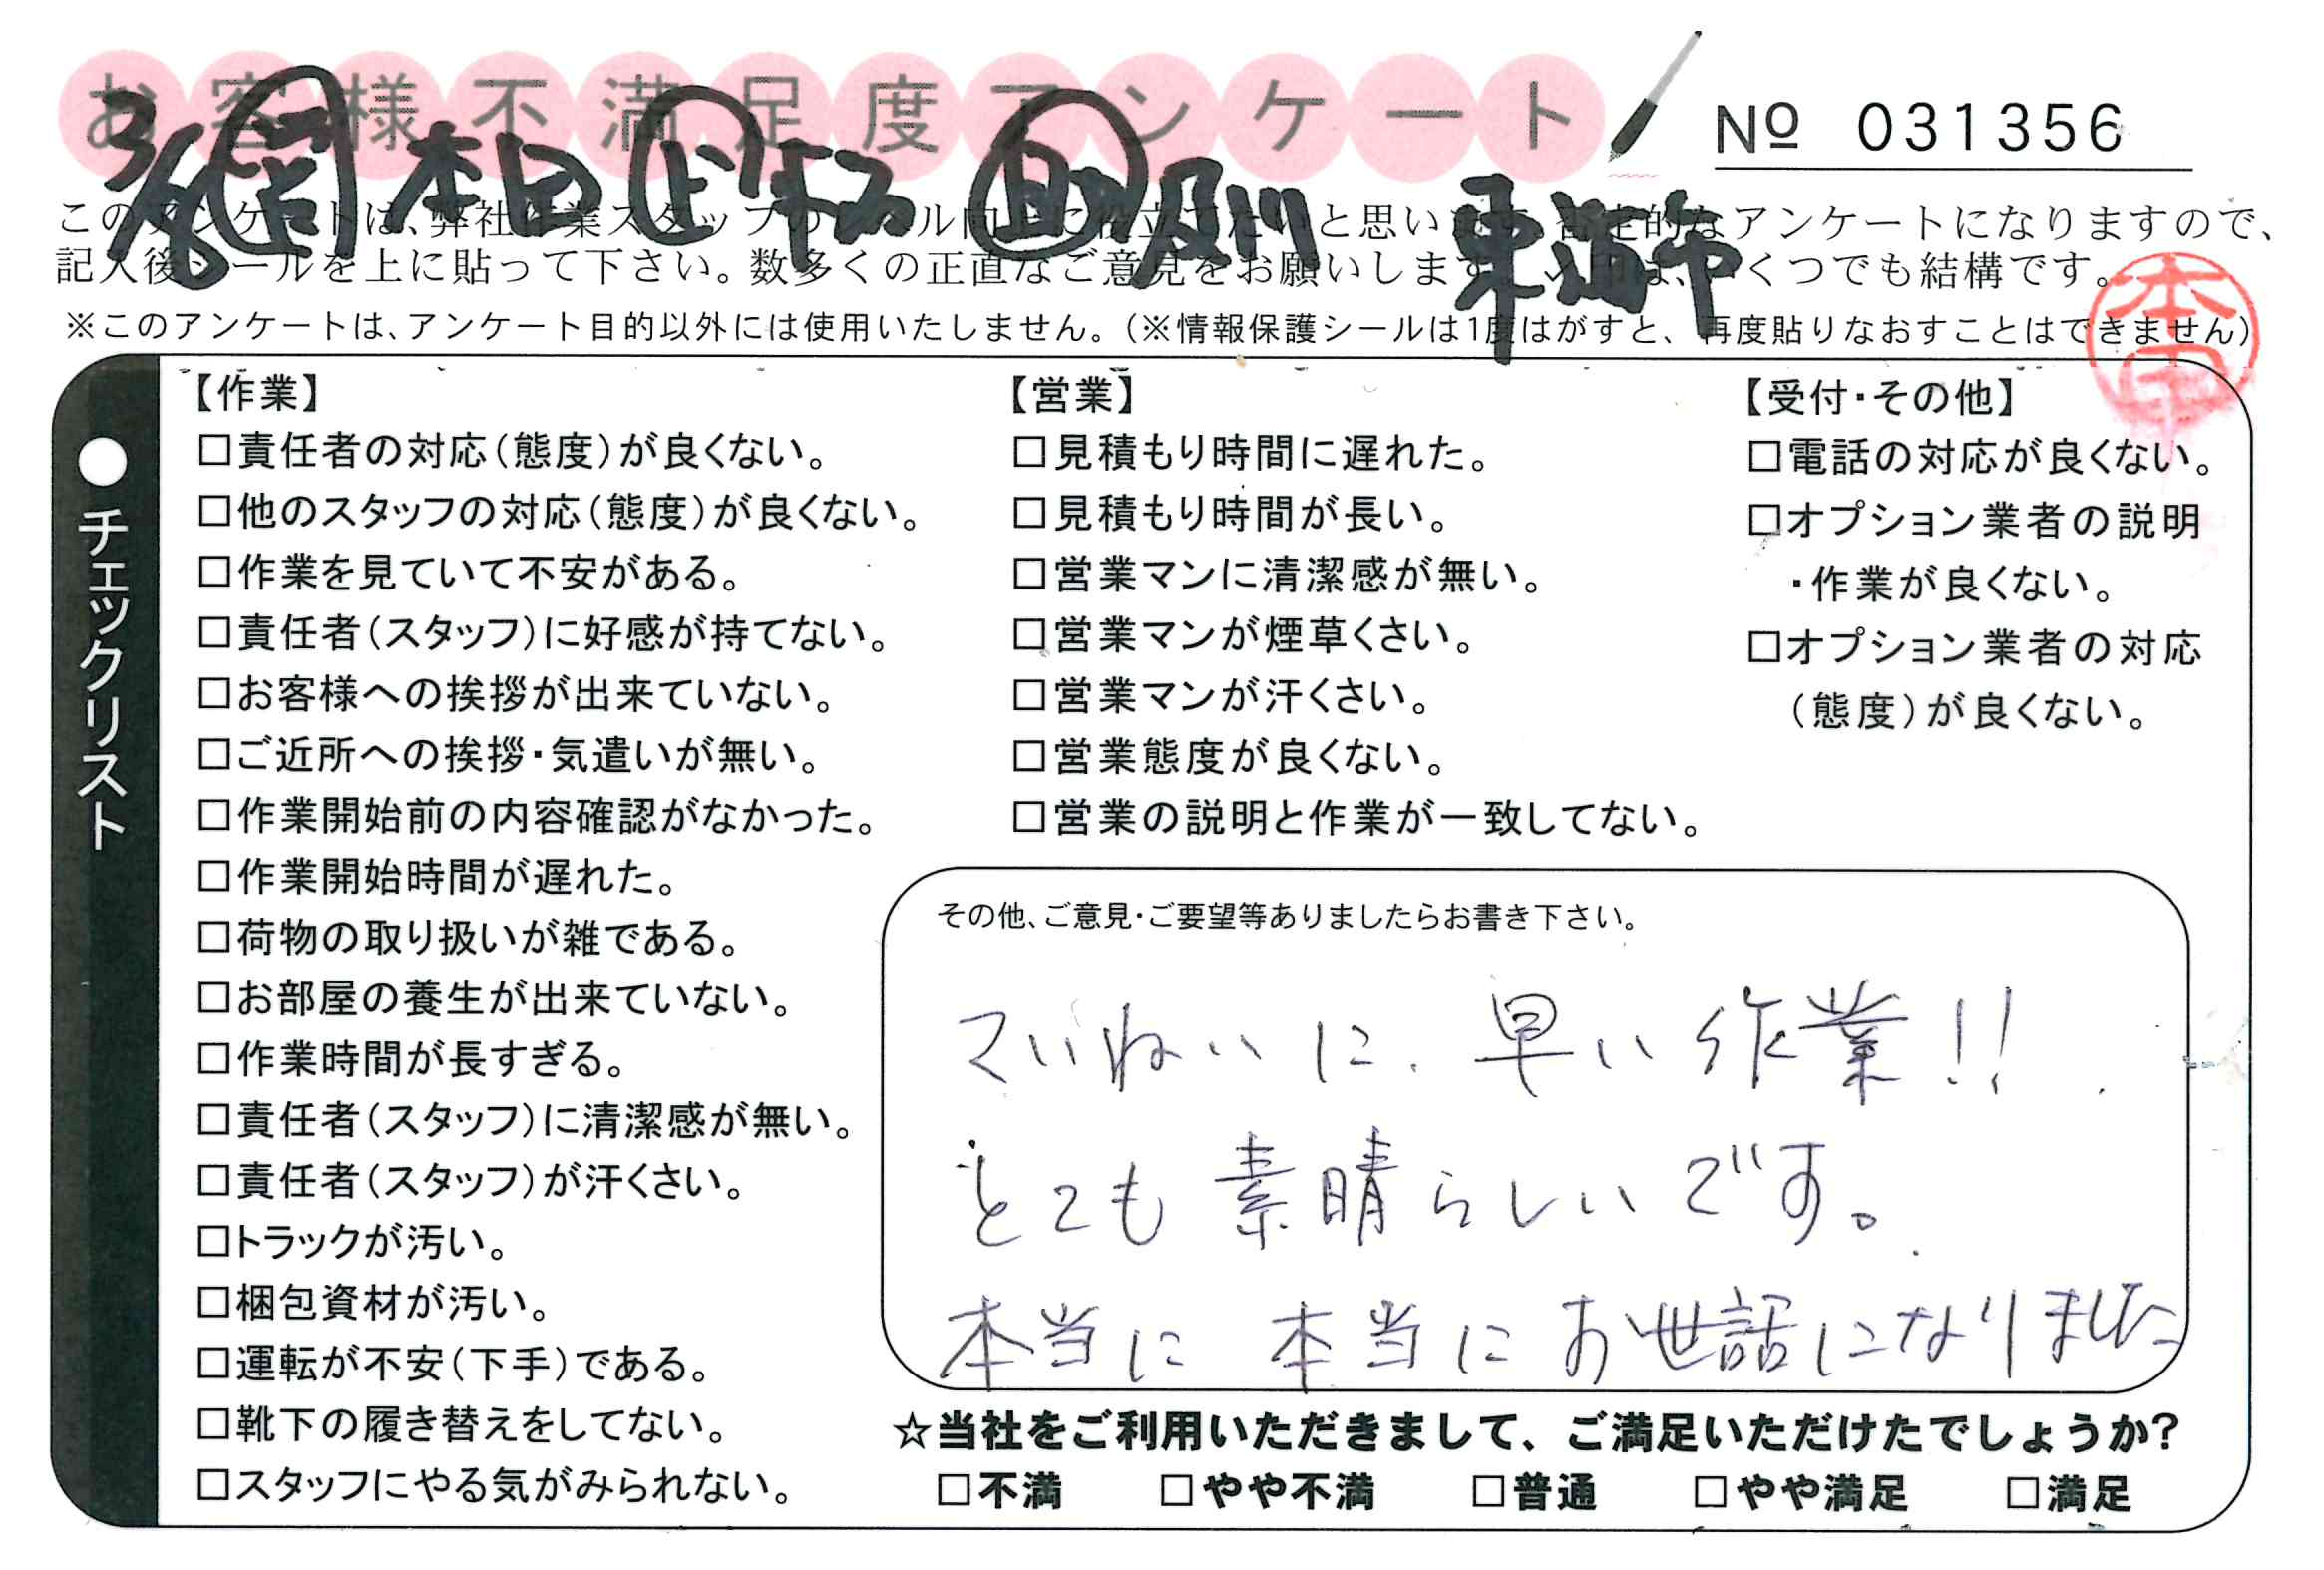 お客様不満足度アンケート
№ 031356
3/6 本田 及川 東海市
このアンケートは、弊社作業スタッフの 思いま アンケートになりますので、
記入後シールを上に貼って下さい。数多くの正直なご意見をお願いします。 いくつでも結構です。
※このアンケートは、アンケート目的以外には使用いたしません。(※情報保護シールは1度はがすと、再度貼りなおすことはできません)
本田
●チェックリスト
【作業】
□責任者の対応(態度)が良くない。
□他のスタッフの対応(態度)が良くない。
□作業を見ていて不安がある。
□責任者(スタッフ)に好感が持てない。
□お客様への挨拶が出来ていない。
□ご近所への挨拶・気遣いが無い。
□作業開始前の内容確認がなかった。
□作業開始時間が遅れた。
□荷物の取り扱いが雑である。
□お部屋の養生が出来ていない。
□作業時間が長すぎる。
□責任者(スタッフ)に清潔感が無い。
□責任者(スタッフ)が汗くさい。
□トラックが汚い。
□梱包資材が汚い。
□運転が不安(下手)である。
□靴下の履き替えをしてない。
□スタッフにやる気がみられない。
【営業】
□見積もり時間に遅れた。
□見積もり時間が長い。
□営業マンに清潔感が無い。
□営業マンが煙草くさい。
□営業マンが汗くさい。
□営業態度が良くない。
□営業の説明と作業が一致してない。
【受付・その他】
□電話の対応が良くない。
□オプション業者の説明
・作業が良くない。
□オプション業者の対応
(態度)が良くない。
その他、ご意見・ご要望等ありましたらお書き下さい。
ていねいに、早い作業!!
とても素晴らしいです。
本当に 本当にお世話になりました
☆当社をご利用いただきまして、ご満足いただけたでしょうか?
□不満 □やや不満 □普通 □やや満足 □満足